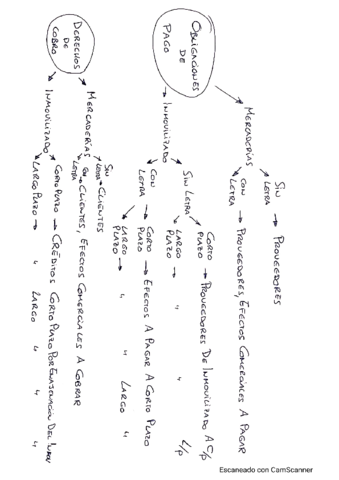 OBLIGACIONES
DE
PAGO
MERCADERÍAS
SIN LETRA → PROVEEDORES
CON LETRA → PROVEEDORES, EFECTOS COMERCIALES A PAGAR
INMOVILIZADO
SIN LETRA
CORTO PLAZO → PROVEEDORES DE INMOVILIZADO A C/P
LARGO PLAZO → " " L/P
CON LETRA
CORTO PLAZO → EFECTOS A PAGAR A CORTO PLAZO
LARGO PLAZO → " " LARGO "
DERECHOS
DE
COBRO
MERCADERÍAS
SIN LETRA → CLIENTES
CON LETRA → CLIENTES, EFECTOS COMERCIALES A COBRAR
INMOVILIZADO
CORTO PLAZO → CRÉDITOS CORTO PLAZO POR ENAJENACIÓN DEL INMOV
LARGO PLAZO → " LARGO " " "
Escaneado con CamScanner